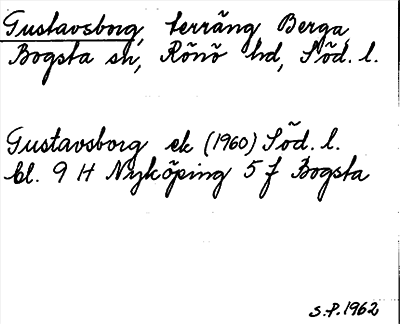 Gustavsborg, terräng, Berga,
Bogsta sn, Rönö hd, Söd. l.
Gustavsborg ek (1960) Söd. l.
bl. 9 H Nyköping 5 f Bogsta
S.P. 1962